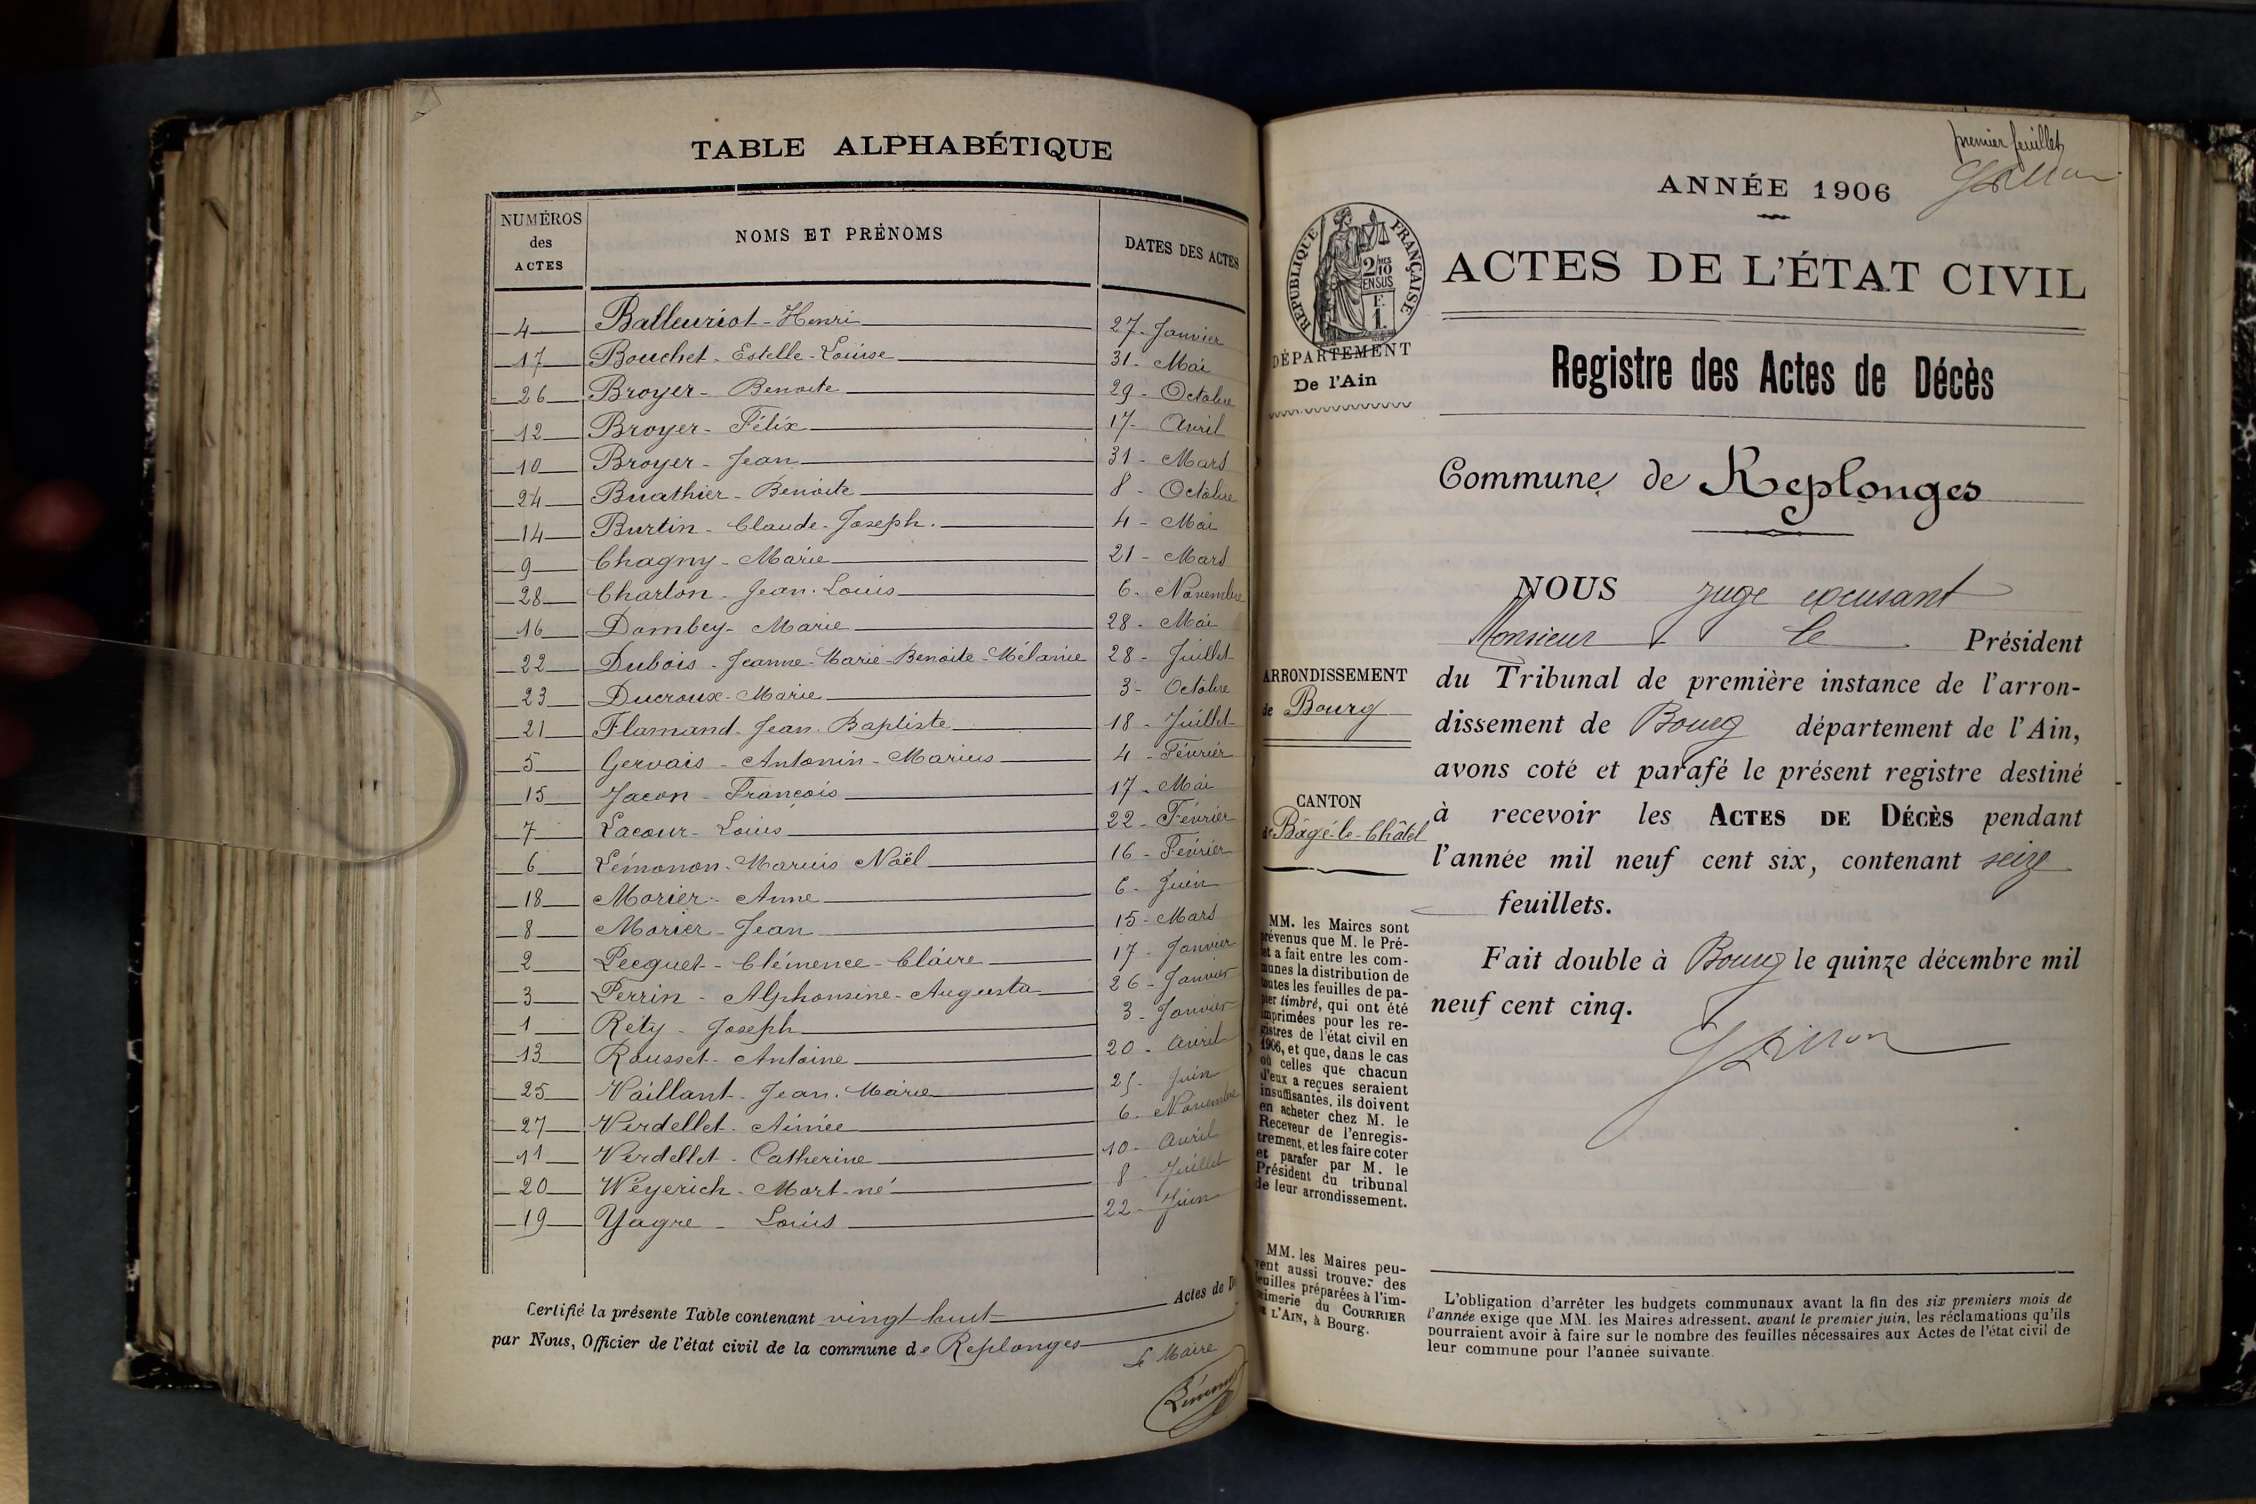 TABLE ALPHABÉTIQUE
NUMÉROS des ACTES
NOMS ET PRÉNOMS
DATES DES ACTES
4 Balleuriot - Henri 27 - Janvier
17 Bouchet - Estelle - Louise 31 - Mai
26 Broyer - Benoite 29 - Octobre
12 Broyer - Félix 17 - Avril
10 Broyer - Jean 31 - Mars
24 Buathier - Benoite 8 - Octobre
14 Burtin - Claude - Joseph. 4 - Mai
9 Chagny - Marie 21 - Mars
28 Charlon - Jean - Louis 6 - Novembre
16 Dombey - Marie 28 - Mai
22 Dubois - Jeanne - Marie - Benoite - Mélanie 28 - Juillet
23 Ducroux - Marie 3 - Octobre
21 Flamand - Jean - Baptiste 18 - Juillet
5 Gervais - Antonin - Marius 4 - Février
15 Jacon - François 17 - Mai
7 Lacour - Louis 22 - Février
6 Lémonon - Marius Noël 16 - Février
18 Morier - Anne 6 - Juin
8 Morier - Jean 15 - Mars
2 Pecquet - Clémence - Claire 17 - Janvier
3 Perrin - Alphonsine - Augusta 26 - Janvier
1 Réty - Joseph 3 - Janvier
13 Rousset - Antoine 20 - Avril
25 Vaillant - Jean - Marie 25 - Juin
27 Verdellet - Aimée 6 - Novembre
11 Verdellet - Catherine 10 - Avril
20 Weyerich - Mort-né 8 - Juillet
19 Yagre - Louis 22 - Juin
Certifié la présente Table contenant vingt huit Actes de
par Nous, Officier de l'état civil de la commune de Replonges
Le Maire
premier feuillet
ANNÉE 1906
RÉPUBLIQUE FRANÇAISE
2/10 EN SUS
DÉPARTEMENT
De l'Ain
ACTES DE L'ÉTAT CIVIL
Registre des Actes de Décès
Commune de Replonges
NOUS juge excusant
Monsieur le Président
du Tribunal de première instance de l'arron-
dissement de Bourg département de l'Ain,
avons coté et parafé le présent registre destiné
à recevoir les ACTES DE DÉCÈS pendant
l'année mil neuf cent six, contenant seize
feuillets.
Fait double à Bourg le quinze décembre mil
neuf cent cinq.
ARRONDISSEMENT
de Bourg
CANTON
de Bâgé-le-Châtel
MM. les Maires sont
prévenus que M. le Pré-
fet a fait entre les com-
munes la distribution de
toutes les feuilles de pa-
pier timbré, qui ont été
imprimées pour les re-
gistres de l'état civil en
1906, et que, dans le cas
où celles que chacun
d'eux a reçues seraient
insuffisantes, ils doivent
en acheter chez M. le
Receveur de l'enregis-
trement, et les faire coter
et parafer par M. le
Président du tribunal
de leur arrondissement.
MM. les Maires peu-
vent aussi trouver des
feuilles préparées à l'im-
primerie du COURRIER
DE L'AIN, à Bourg.
L'obligation d'arrêter les budgets communaux avant la fin des six premiers mois de
l'année exige que MM. les Maires adressent, avant le premier juin, les réclamations qu'ils
pourraient avoir à faire sur le nombre des feuilles nécessaires aux Actes de l'état civil de
leur commune pour l'année suivante.